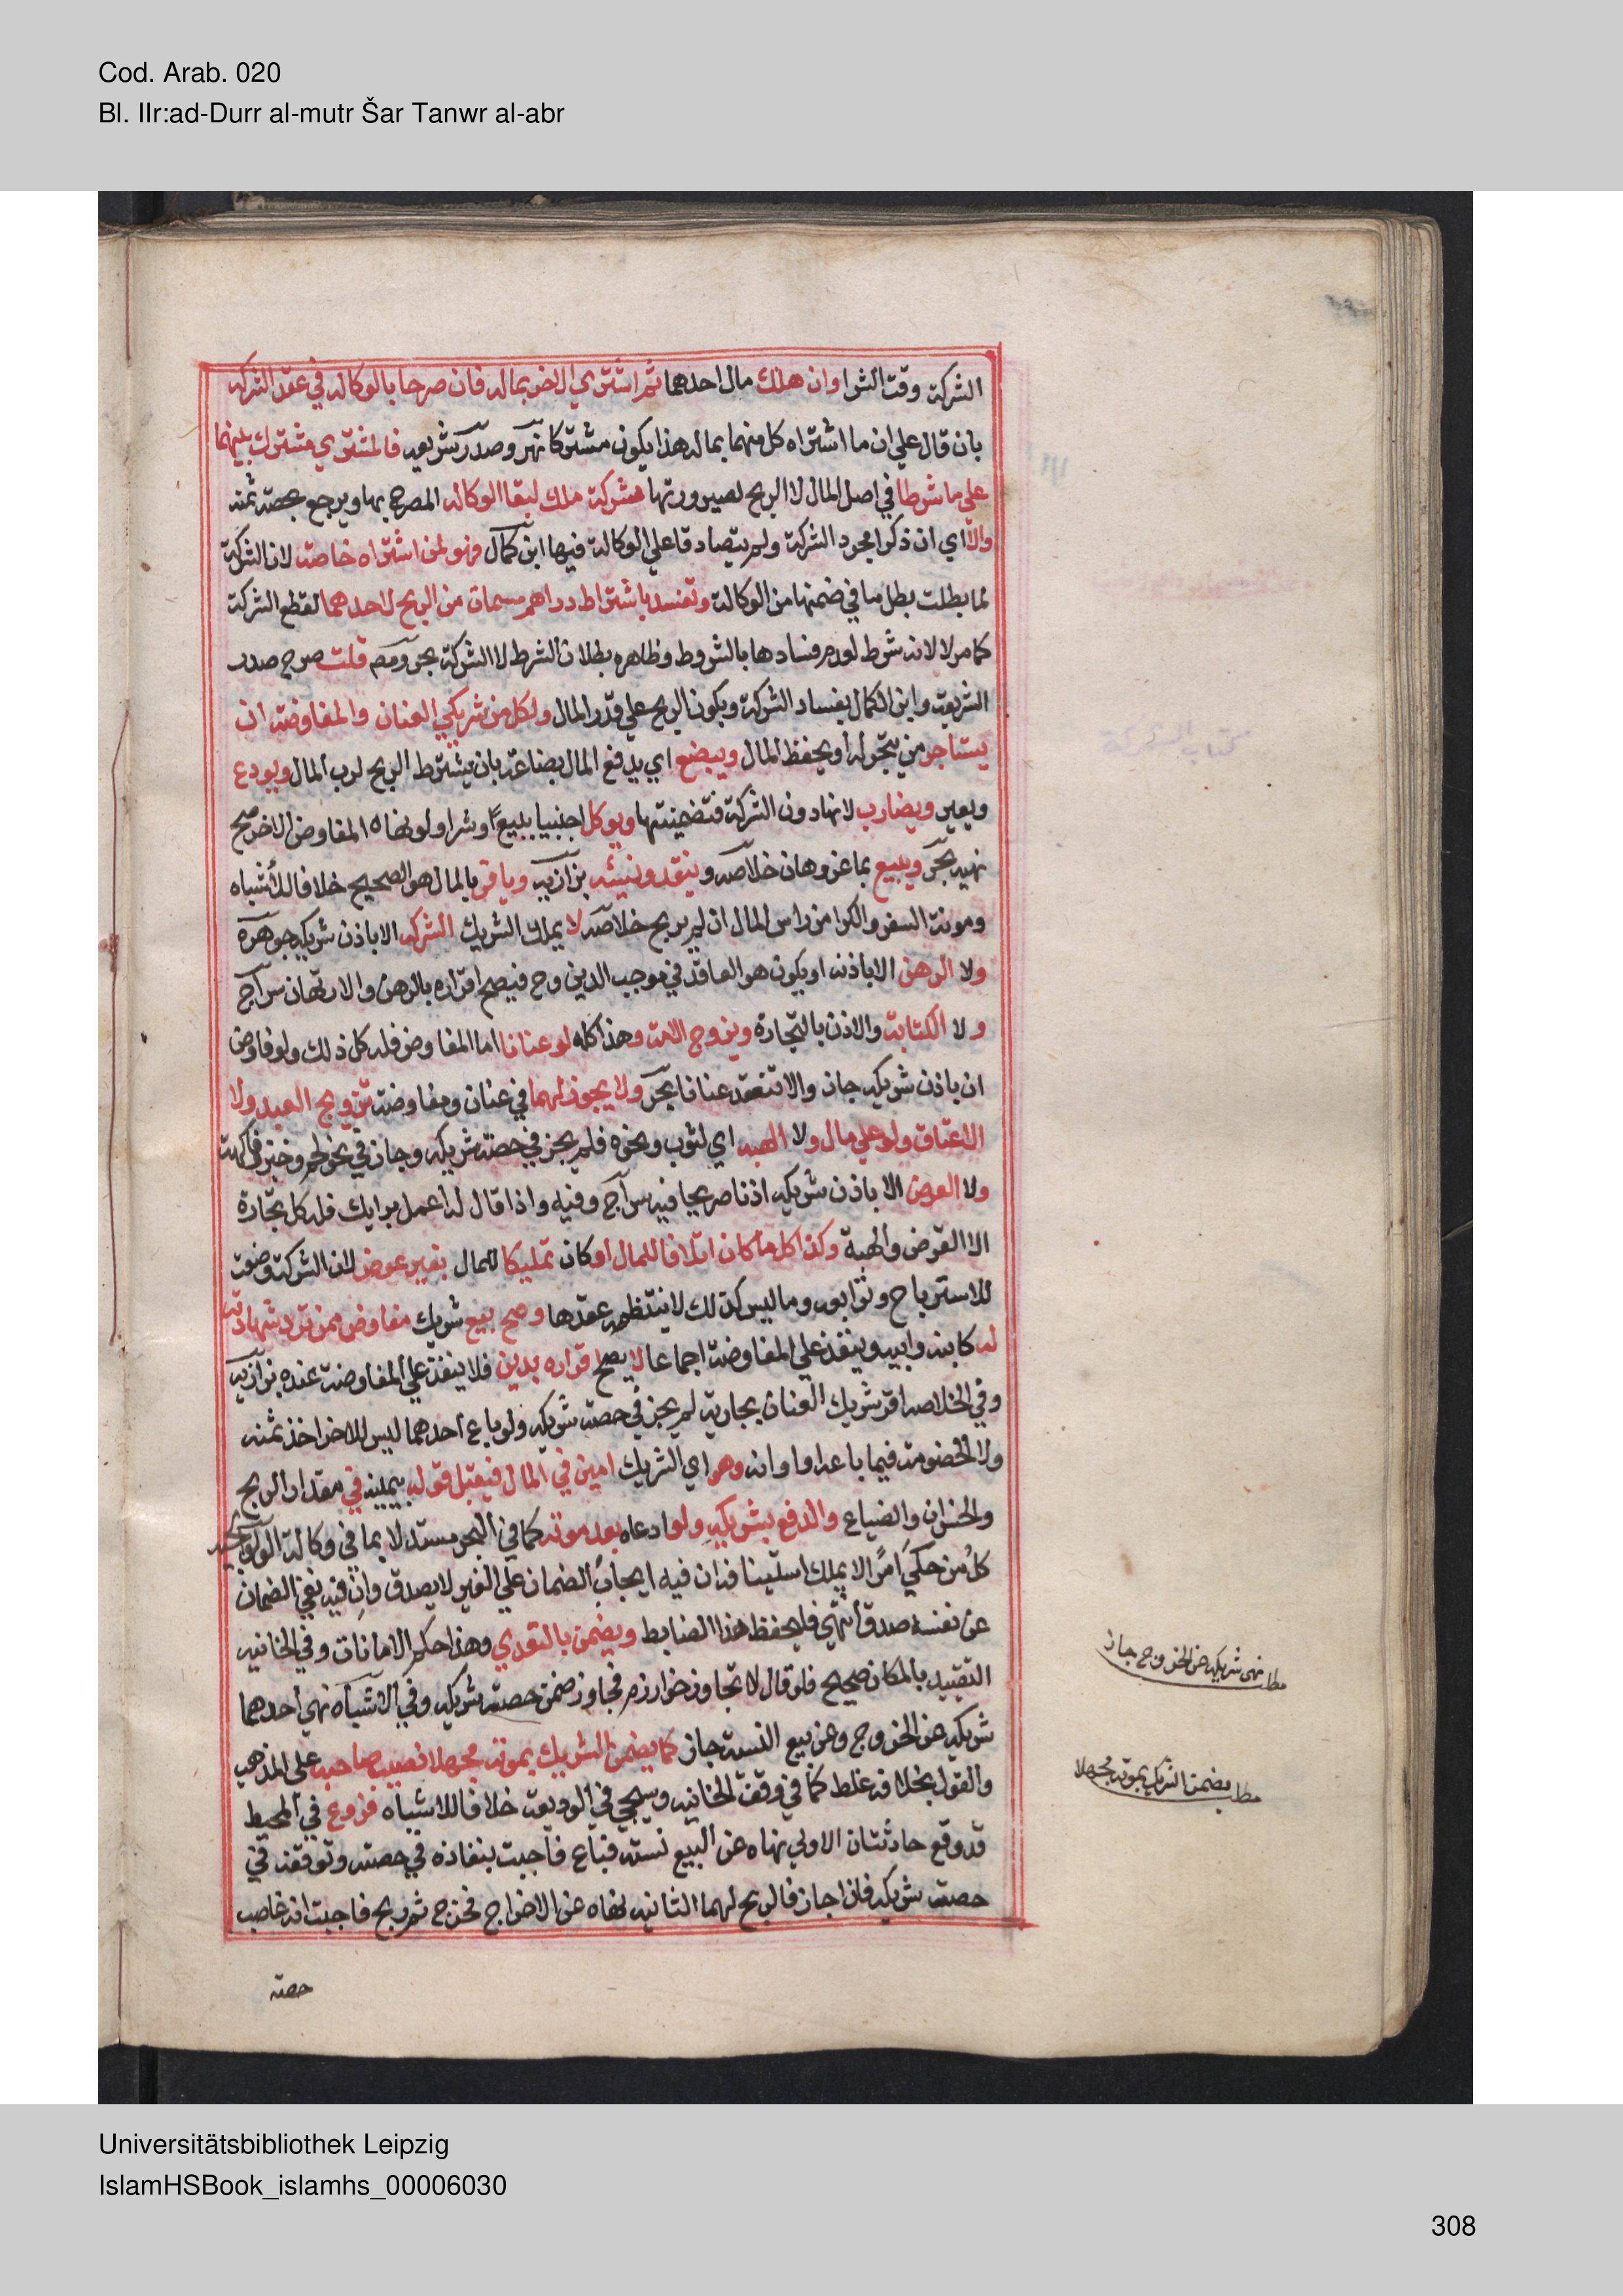 Cod. Arab. 020
Bl. IIr:ad-Durr al-mutr Šar Tanwr al-abr
الشركة وقت الشرا وان هلك مال احدهما ثم اشترى الاخر بماله فان صرحا بالوكاله في عقد الشركه
بان قال علي ان ما اشتراه كل منهما بماله هذا يكون مشتركا نهر وصدر شريعه فالمشتري مشترك بينهما
علي ما شرطا في اصل المال لا الربح لصيرورتها شركة ملك لبقا الوكاله المصرح بها ويرجع بحصة ثمنه
والا اي ان ذكرا مجرد الشركة ولم يتصادقا علي الوكالة فيها ابن كمال فهو لمن اشتراه خاصة لان الشركة
لما بطلت بطل ما في ضمنها من الوكالة وتفسد باشتراط دراهم مسماة من الربح لاحدهما لقطع الشركة
كما مر لا لانه شرط لعدم فسادها بالشروط وظاهره بطلان الشرط لا الشركة بحر ومصـ قلت صرح صدر
الشريعة وابن الكمال بفساد الشركة ويكون الربح علي قدر المال ولكل من شريكي العنان والمفاوضة ان
يستاجر من يتجر له او يحفظ المال ويبضع اي يدفع المال بضاعة بان يشترط الربح لرب المال ويودع
ويعير ويضارب لانها دون الشركة فتضمنتها ويوكل اجنبيا ببيع او شرا ولو نهاه المفاوض الاخر صح
نهيه بحر ويبيع بما عز وهان خلاصه وينقد ونسيئه بزازيه ويسافر بالمال هو الصحيح خلافا للأشباه
ومونة السفر والكرا من راس المال ان لم يربح خلاصه لا يملك الشريك الشركه الا باذن شريكه جوهره
ولا الرهن الا باذنه او يكون هو العاقد في موجب الدين وح فيصح اقراره بالرهن والارتهان سراج
ولا الكتابة والاذن بالتجارة وتزويج الامة وهذا كله لو عنانا اما المفاوض فله كل ذلك ولو فاوض
ان باذن شريكه جاز والا تنعقد عنانا بحر ولا يجوز لهما في عنان ومفاوضة تزويج العبد ولا
الاعتاق ولو علي مال ولا الهبه اي لثوب ونحوه فلم يجز في حصة شريكه وجاز في نحو لحم وخبز وفاكهة
ولا القرض الا باذن شريكه اذنا صريحا فيه سراج وفيه واذا قال له اعمل برايك فله كل تجارة
الا القرض والهبة وكذا كل ما كان اتلافا للمال او كان تمليكا للمال بغير عوض لان الشركة وضعت
للاسترباح وتوابعه وما ليس كذلك لا ينتظمه عقدها وصح بيع شريك مفاوض ممن ترد شهادته
له كابنه وابيه وينفذ علي المفاوضة اجماعا لا يصح اقراره بدين فلا ينفذ علي المفاوضة عنده بزازيه
وفي الخلاصه اقر شريك العنان بجارية لم يجز في حصة شريكه ولو باع احدهما ليس للاخر اخذ ثمنه
ولا الخصومة فيما باعه او ادانه وهو اي الشريك امين في المال فيقبل قوله بيمينه في مقدار الربح
والخسران والضياع والدفع لشريكه ولو ادعاه بعد موته كما في البحر مستدلا بما في وكالة الولوالجيه
كل من حكي امرا لا يملك استئنافه ان فيه ايجاب الضمان علي الغير لا يصدق وان فيه نفي الضمان
عن نفسه صدق انتهي فليحفظ هذا الضابط ويضمن بالتعدي وهذا حكم الامانات وفي الخانيه
التقييد بالمكان صحيح فلو قال لا تجاوز خوارزم فجاوز ضمن حصة شريكه وفي الاشباه نهي احدهما
شريكه عن الخروج وعن بيع النسئة جاز كما يضمن الشريك بموته مجهلا نصيب صاحبه علي المذهب
والقول بخلافه غلط كما في وقف الخانيه وسيجي في الوديعة خلافا للاشباه فروع في المحيط
قد وقع حادثتان الاولي نهاه عن البيع نسئة فباع فاجبت بنفاذه في حصته وتوقفه في
حصة شريكه فان اجاز فالربح لهما الثانيه نهاه عن الاخراج فخرج ثم ربح فاجبت انه غاصب
حصة
مطلب نهى شريكه عن الخروج جاز
مطلب يضمن الشريك بموته مجهلا
كتاب الشركة
Universitätsbibliothek Leipzig
IslamHSBook_islamhs_00006030
308